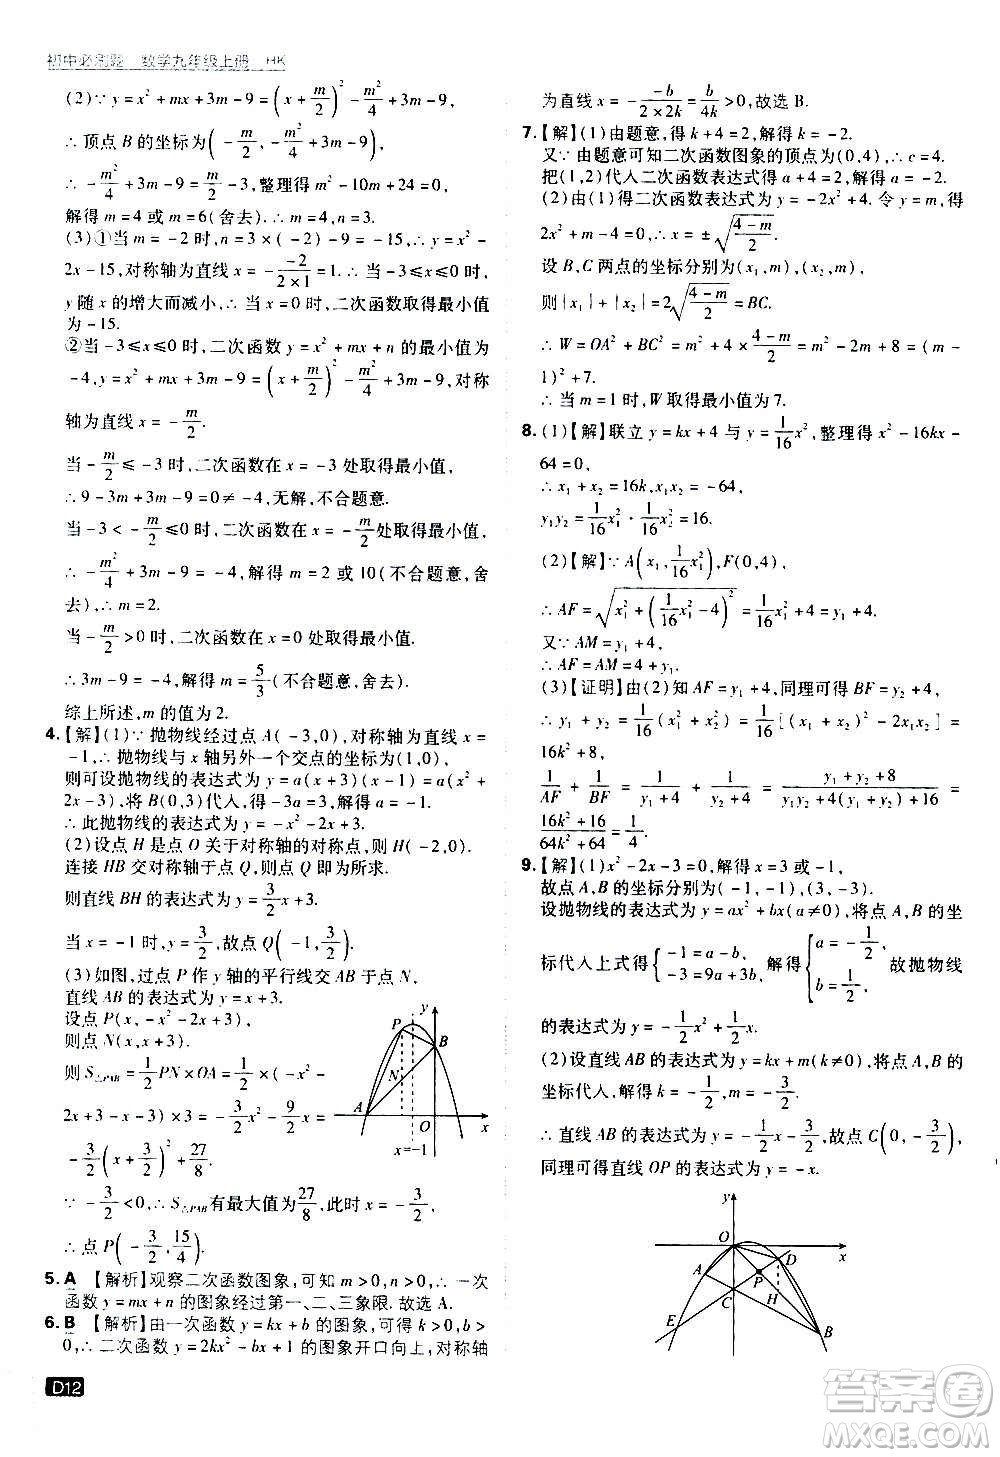 初中必刷题 数学九年级上册 HK
(2)∵y=x²+mx+3m-9=(x+m/2)²-m²/4+3m-9,
∴顶点 B 的坐标为(-m/2,-m²/4+3m-9).
∴-m²/4+3m-9=-3,整理得 m²-10m+24=0,
解得 m=4 或 m=6(舍去).∴m=4,n=3.
(3)①当 m=-2 时,n=3×(-2)-9=-15,∴y=x²-
2x-15,对称轴为直线 x=-(-2)/(2×1)=1.当-3≤x≤0 时,
y 随 x 的增大而减小,∴当 x=0 时,二次函数取得最小值
为-15.
②当-3≤x≤0 时,二次函数 y=x²+mx+n 的最小值为
-4,y=x²+mx+3m-9=(x+m/2)²-m²/4+3m-9,对称
轴为直线 x=-m/2.
当-m/2≤-3 时,二次函数在 x=-3 处取得最小值,
∴9-3m+3m-9=0≠-4,无解,不合题意.
当-3<-m/2≤0 时,二次函数在 x=-m/2处取得最小值,
∴-m²/4+3m-9=-4,解得 m=2 或 10(不合题意,舍
去),∴m=2.
当-m/2>0 时,二次函数在 x=0 处取得最小值,
∴3m-9=-4,解得 m=5/3(不合题意,舍去).
综上所述,m 的值为 2.
4.【解】(1)∵抛物线经过点 A(-3,0),对称轴为直线 x=
-1,∴抛物线与 x 轴另外一个交点的坐标为(1,0),
则可设抛物线的表达式为 y=a(x+3)(x-1)=a(x²+
2x-3),将 B(0,3)代入,得-3a=3,解得 a=-1.
∴此抛物线的表达式为 y=-x²-2x+3.
(2)设点 H 是点 O 关于对称轴的对称点,则 H(-2,0),
连接 HB 交对称轴于点 Q,则点 Q 即为所求.
则直线 BH 的表达式为 y=3/2x+3.
当 x=-1 时,y=3/2,故点 Q(-1,3/2).
(3)如图,过点 P 作 y 轴的平行线交 AB 于点 N,
直线 AB 的表达式为 y=x+3.
设点 P(x,-x²-2x+3),
则点 N(x,x+3).
则 S△PAB=1/2PN×OA=1/2(-x²-
2x+3-x-3)×3=-3/2x²-9/2x=
-3/2(x+3/2)²+27/8.
∵-3/2<0,∴S△PAB有最大值为27/8,此时 x=-3/2,
∴点 P(-3/2,15/4).
y
P
B
N
A
O
x
x=-1
5. A 【解析】观察二次函数图象,可知 m>0,n>0,∴一次
函数 y=mx+n 的图象经过第一、二、三象限.故选 A.
6. B 【解析】由一次函数 y=kx+b 的图象,可得 k>0,b>
0,∴二次函数 y=2kx²-bx+1 的图象开口向上,对称轴
D12
为直线 x=-(-b)/(2×2k)=b/4k>0,故选 B.
7.【解】(1)由题意,得 k+4=2,解得 k=-2.
又∵由题意可知二次函数图象的顶点为(0,4),∴c=4.
把(1,2)代入二次函数表达式得 a+4=2,解得 a=-2.
(2)由(1)得二次函数表达式为 y=-2x²+4.令 y=m,得
2x²+m-4=0,∴x=±√((4-m)/2).
设 B,C 两点的坐标分别为(x₁,m),(x₂,m),
则|x₁|+|x₂|=2√((4-m)/2)=BC.
∴W=OA²+BC²=m²+4×(4-m)/2=m²-2m+8=(m-
1)²+7.
∴当 m=1 时,W 取得最小值 7.
8.(1)【解】联立 y=kx+4 与 y=1/16x²,整理得 x²-16kx-
64=0,
∴x₁+x₂=16k,x₁x₂=-64,
y₁y₂=1/16x₁²·1/16x₂²=16.
(2)【解】∵A(x₁,1/16x₁²),F(0,4),
∴AF=√(x₁²+(1/16x₁²-4)²)=1/16x₁²+4=y₁+4.
又∵AM=y₁+4,
∴AF=AM=y₁+4.
(3)【证明】由(2)知 AF=y₁+4,同理可得 BF=y₂+4,
∴y₁+y₂=1/16(x₁²+x₂²)=1/16[(x₁+x₂)²-2x₁x₂]=
16k²+8,
1/AF+1/BF=1/(y₁+4)+1/(y₂+4)=(y₁+y₂+8)/(y₁y₂+4(y₁+y₂)+16)=
(16k²+16)/(64k²+64)=1/4.
9.【解】(1)x²-2x-3=0,解得 x=3 或-1,
故点 A,B 的坐标分别为(-1,-1),(3,-3).
设抛物线的表达式为 y=ax²+bx(a≠0),将点 A,B 的坐
标代入上式得{-1=a-b, -3=9a+3b, 解得{a=-1/2, b=1/2, 故抛物线
的表达式为 y=-1/2x²+1/2x.
(2)设直线 AB 的表达式为 y=kx+m(k≠0),将点 A,B 的
坐标代入,解得 k=-1/2,m=-3/2,
∴直线 AB 的表达式为 y=-1/2x-3/2,故点 C(0,-3/2),
同理可得直线 OP 的表达式为 y=-x.
y
O
x
A
D
P
C
H
E
B
答案卷